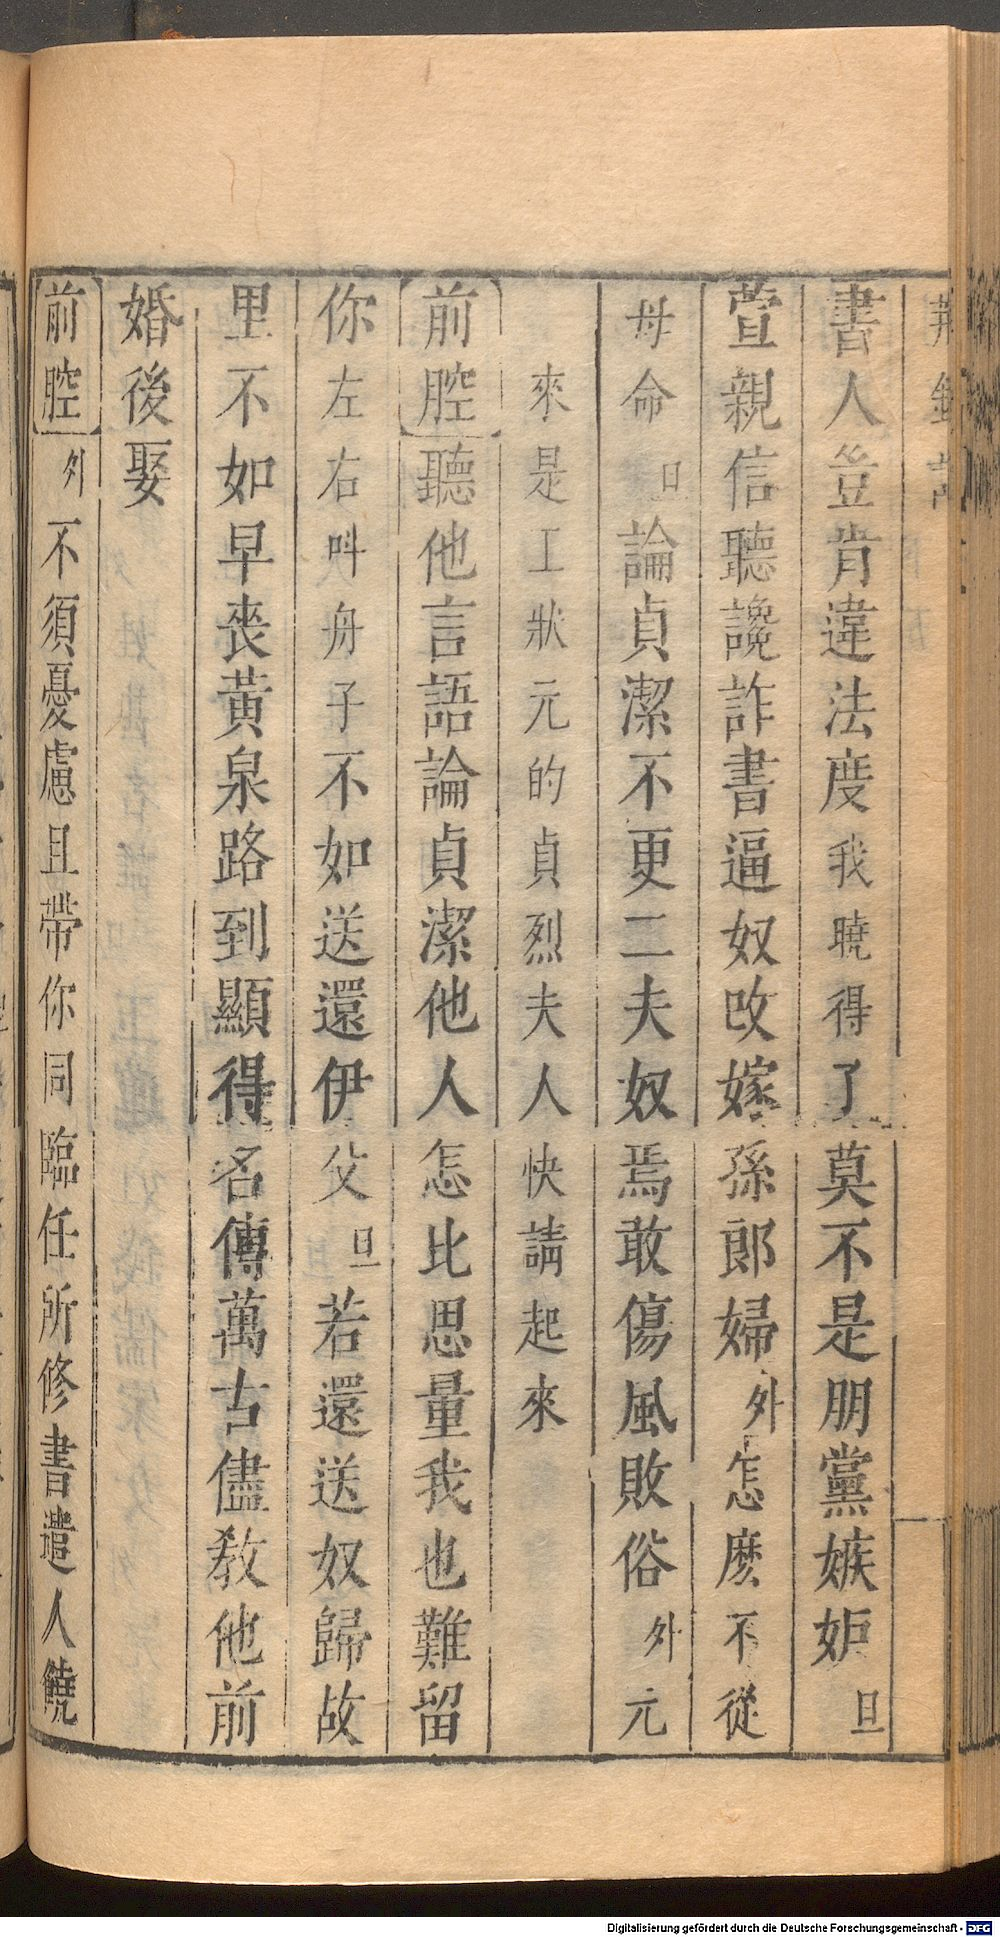 荆釵記
書人豈肯違法度我曉得了莫不是朋黨嫉妒旦
萱親信聽讒詐書逼奴改嫁孫郎婦外怎麽不從
母命旦論貞潔不更二夫奴焉敢傷風敗俗外元
來是工狀元的貞烈夫人快請起來
前腔聽他言語論貞潔他人怎比思量我也難留
你左右呌舟子不如送還伊父旦若還送奴歸故
里不如早喪黃泉路到顯得名傳萬古儘教他前
婚後娶
前腔外不須憂慮且帶你同臨任所修書遣人饒
Digitalisierung gefördert durch die Deutsche Forschungsgemeinschaft - DFG